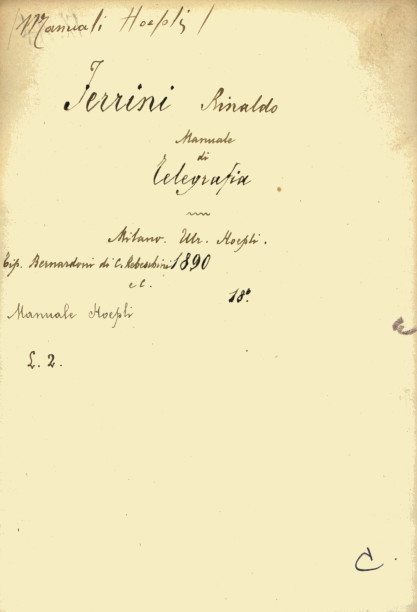 (Manuali Hoepli)
Ferrini Rinaldo
Manuale
di
Telegrafia
Milano. Ulr. Hoepli.
Tip. Bernardoni di C. Rebeschini 1890
e C.
18º
Manuale Hoepli
L. 2.
C.